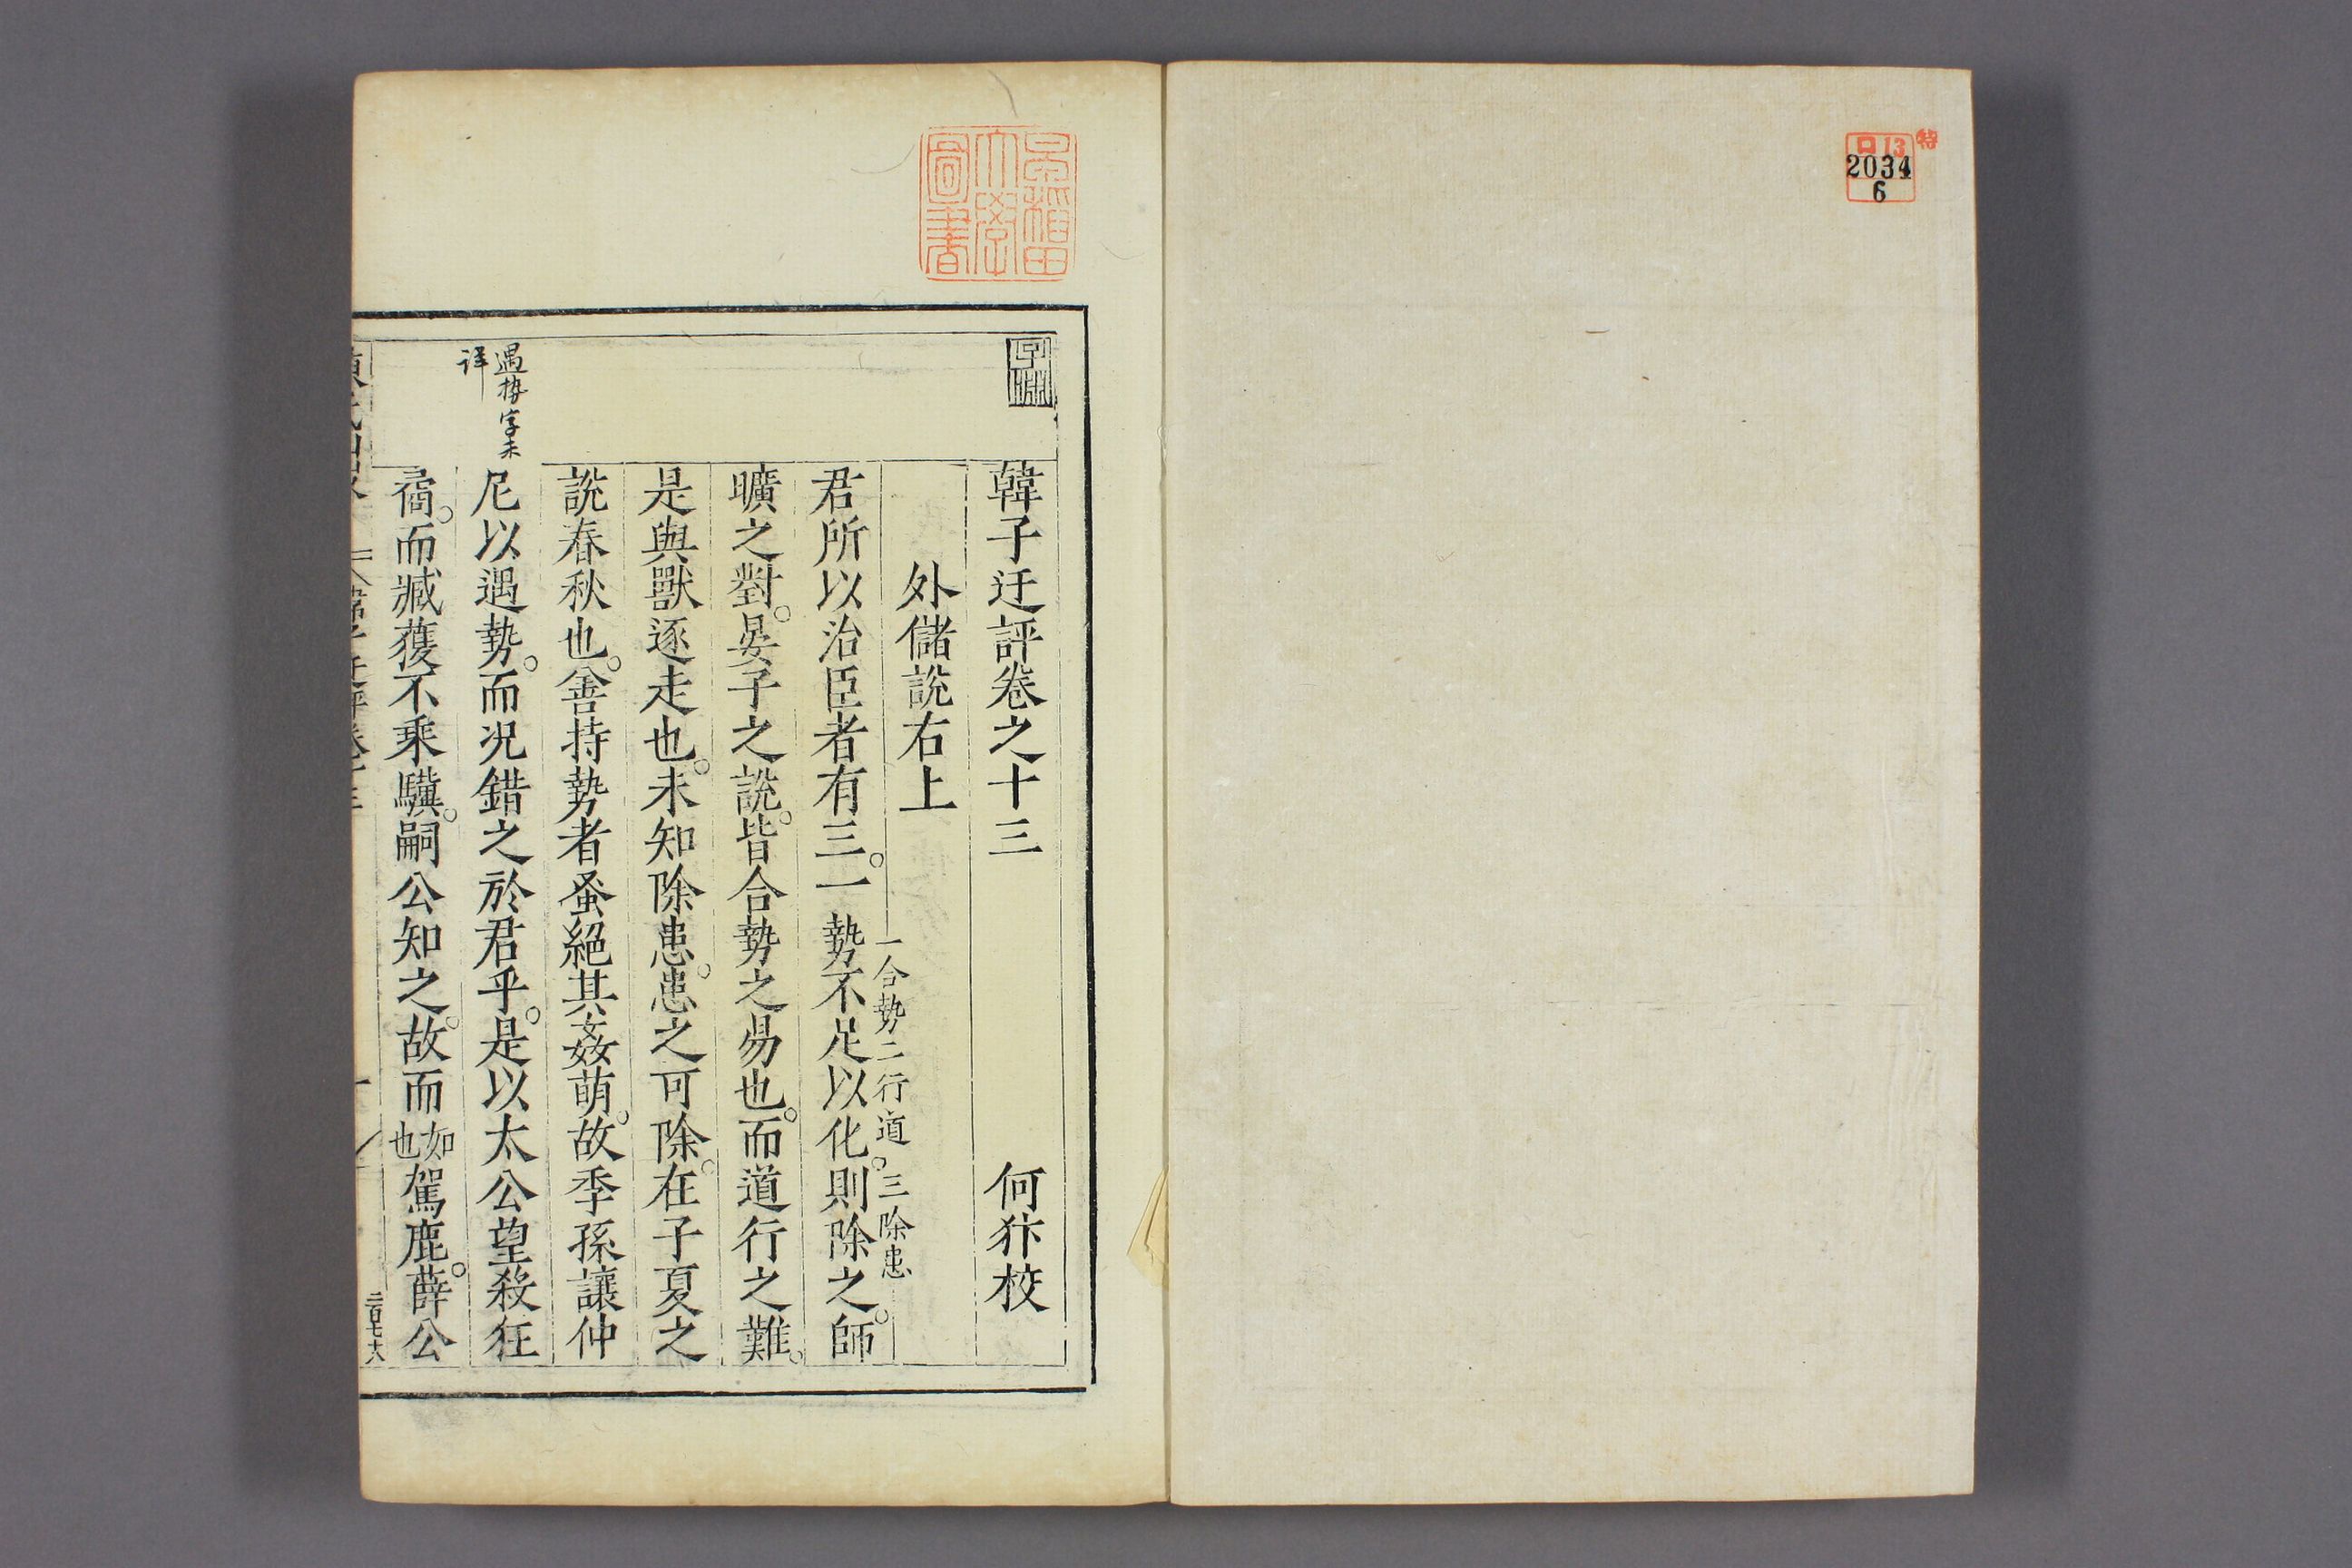 特
口13
2034
6
早稲田大學圖書
韓子迂評卷之十三 何犿校
外儲說右上
一合勢二行道三除患
君所以治臣者有三。一勢不足以化。則除之。師
曠之對。晏子之說。皆合勢之易也。而道行之難。
是與獸逐走也。未知除患。患之可除。在子夏之
說春秋也。善持勢者蚤絕其姦萌。故季孫讓仲
遇勢字未
詳
尼以遇勢。而况錯之於君乎。是以太公望殺狂
矞。而臧獲不乘驥。嗣公知之。故而如也駕鹿。薛公
二百七十八